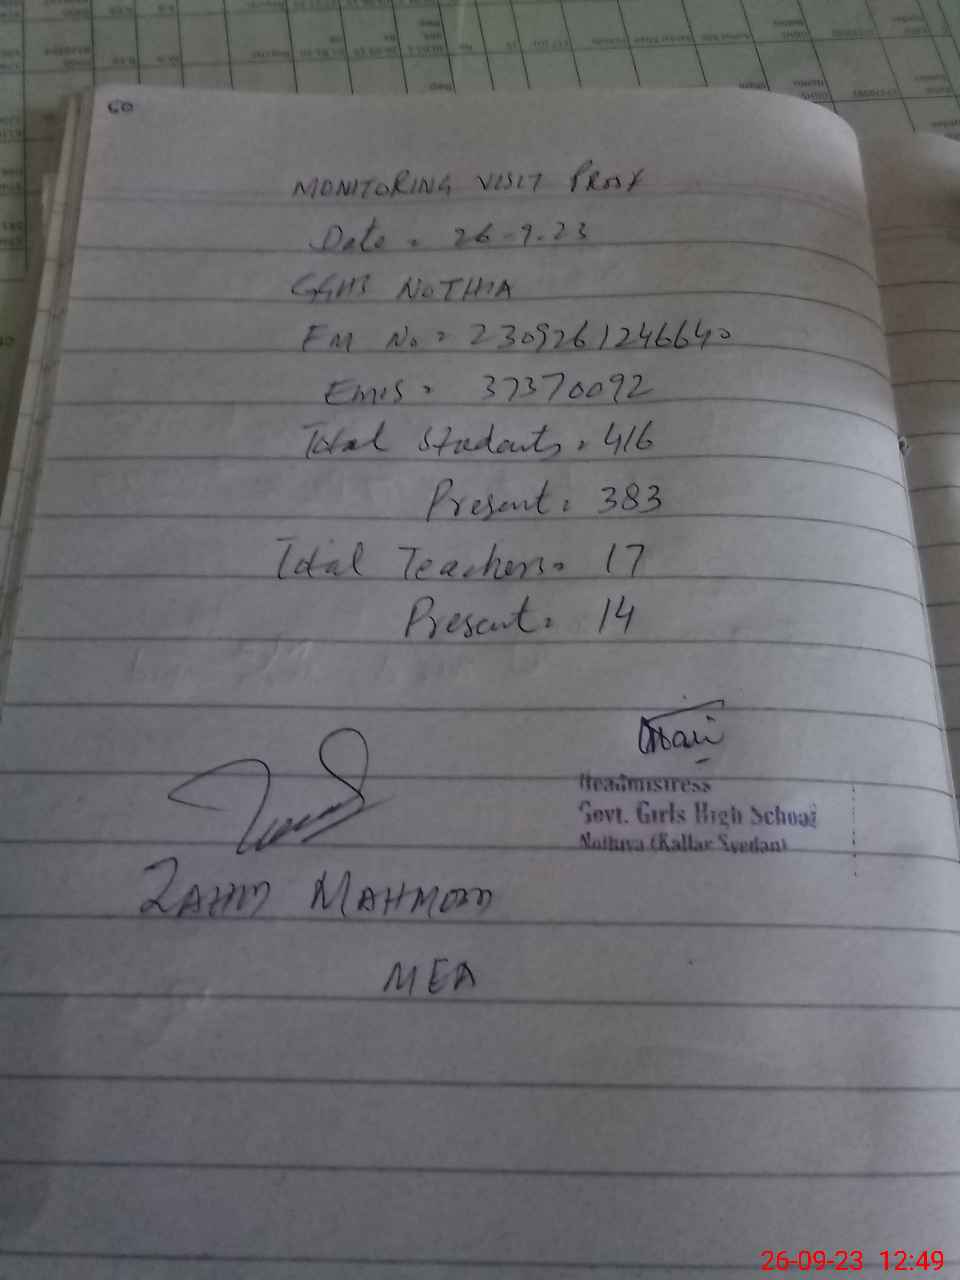 60
MONITORING VISIT PROOF
Date = 26-9-23
GGHS NOTHIA
EM No = 2309261246640
EMIS = 37370092
Total Students = 416
Present = 383
Total Teachers = 17
Present = 14
Headmistress
Govt. Girls High School
Nothiya (Kallar Syedan)
ZAHID MAHMOOD
MEA
26-09-23 12:49